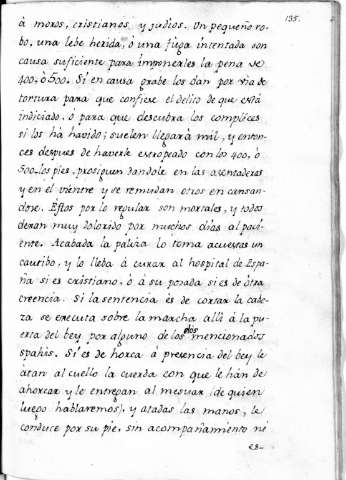 135.
à moros, cristianos y judios. Un pequeño ro-
bo, una lebe herida, ò una fuga intentada son
causa suficiente para imponerles la pena de
400, ò 500. Si en causa grabe los dan por via de
tortura para que confiese el delito de que està
indiciado, ò para que descubra los complices
si los hà havido; suelen llegar à mil, y enton-
ces despues de haverle estropeado con los 400, ò
500 los pies, prosiguen dandole en las asentaderas
y en el vientre y se remudan otros en cansan-
dose. Estos por lo regular son mortales, y todos
dexan muy dolorido por muchos dias al paci-
ente. Acabada la paliza lo toma acuestas un
cautibo, y lo lleba à curar al hospital de Espa-
ña si es cristiano, ò à su posada si es de òtra
creencia. Si la sentencia ès de cortar la cabe-
za se executa sobre la marcha alli à la pu-
erta del bey por alguno de los dos mencionados
spahis. Si ès de horca à presencia del bey le
àtan al cuello la cuerda con que le hàn de
ahorcar y le entregan al mesuar (de quien
luego hablaremos), y atadas las manos, le
conduce por su pie, sin acompañamiento ni